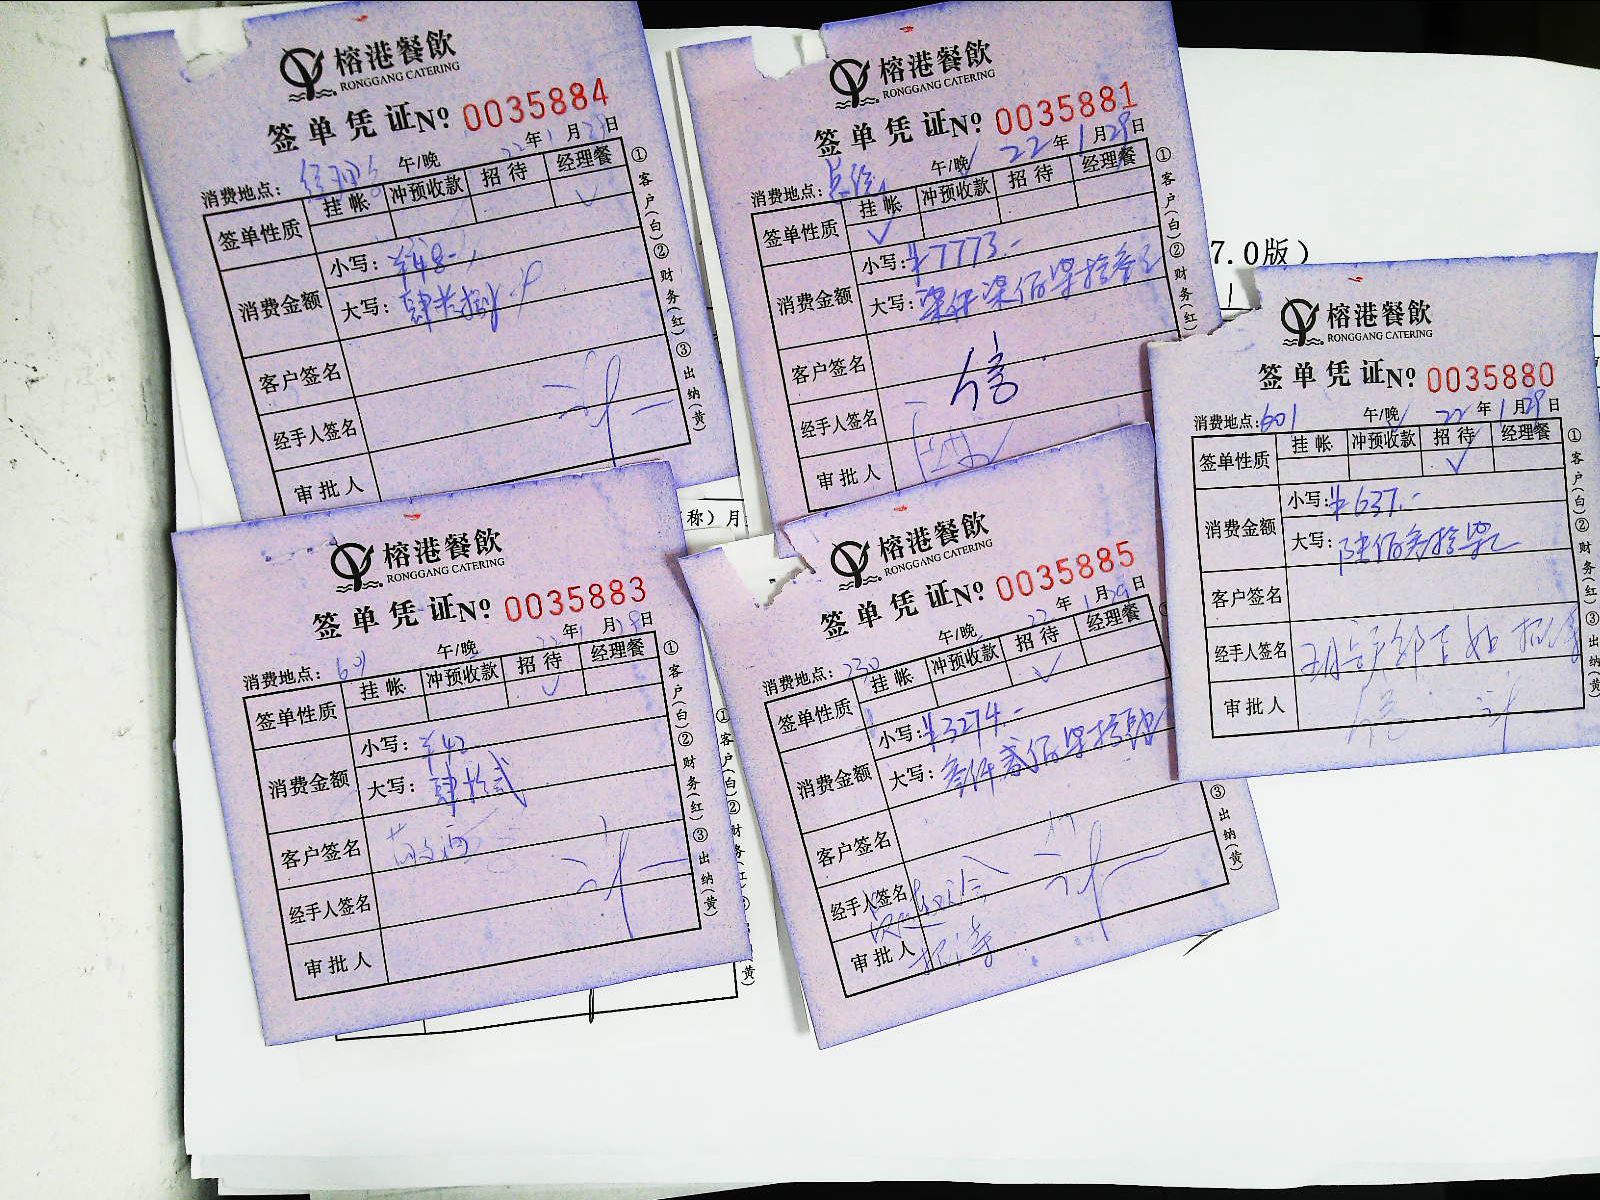 榕港餐飲
RONGGANG CATERING
签单凭证No. 0035884
午/晚 22年1月29日
消费地点:
签单性质 挂帐 冲预收款 招待 经理餐
✓
消费金额 小写: ¥48-
大写: 肆拾捌
客户签名
经手人签名
审批人
①客户(白)②财务(红)③出纳(黄)
榕港餐飲
RONGGANG CATERING
签单凭证No. 0035881
午/晚 22年1月29日
消费地点:
签单性质 挂帐 冲预收款 招待 经理餐
✓
消费金额 小写: ¥7773.-
大写: 柒仟柒佰柒拾叁元
客户签名
经手人签名
审批人
①客户(白)②财务(红)
7.0版)
榕港餐飲
RONGGANG CATERING
签单凭证No. 0035880
消费地点: 601 午/晚 22年1月29日
签单性质 挂帐 冲预收款 招待 经理餐
✓
消费金额 小写: ¥637.-
大写: 陆佰叁拾柒元
客户签名
经手人签名
审批人
①客户(白)②财务(红)③出纳(黄)
称)月
榕港餐飲
RONGGANG CATERING
签单凭证No. 0035883
午/晚 22年1月28日
消费地点: 601
签单性质 挂帐 冲预收款 招待 经理餐
✓
消费金额 小写: ¥42
大写: 肆拾贰
客户签名
经手人签名
审批人
①客户(白)②财务(红)③出纳(黄)
①客户(白)②财务(红)
黄)
榕港餐飲
RONGGANG CATERING
签单凭证No. 0035885
午/晚 22年1月29日
消费地点: 230
签单性质 挂帐 冲预收款 招待 经理餐
✓
消费金额 小写: ¥3274.-
大写: 叁仟贰佰柒拾肆
客户签名
经手人签名
审批人
③出纳(黄)